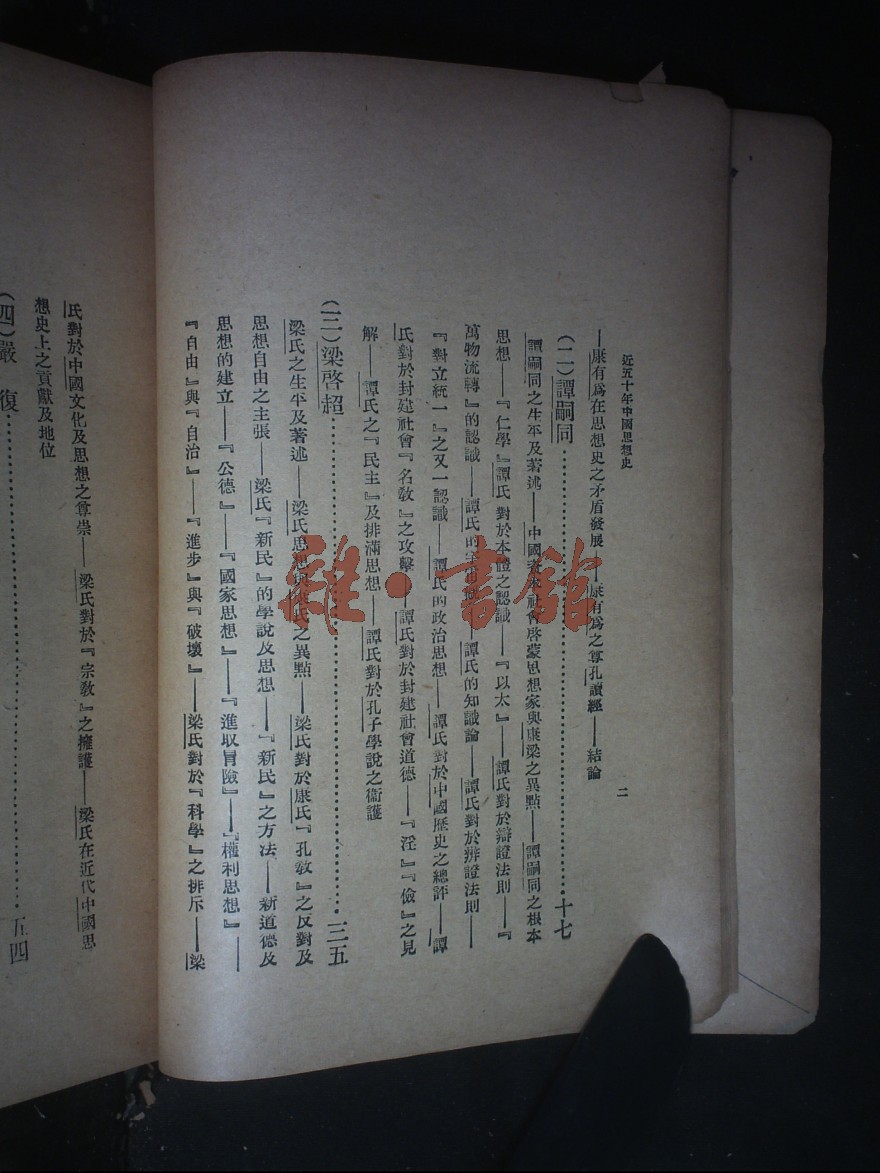 近五十年中國思想史
二
——康有爲在思想史之矛盾發展——康有爲之尊孔讀經——結論
(二)譚嗣同……十七
譚嗣同之生平及著述——中國 社會啓蒙思想家與康梁之異點——譚嗣同之根本
思想——『仁學』譚氏對於本體之認識——『以太』——譚氏對於辯證法則——『
萬物流轉』的認識——譚氏的 ——譚氏的知識論——譚氏對於辨證法則——
『對立統一』之又一認識——譚氏的政治思想——譚氏對於中國歷史之總評——譚
氏對於封建社會『名敎』之攻擊——譚氏對於封建社會道德——『淫』『儉』之見
解——譚氏之『民主』及排滿思想——譚氏對於孔子學說之衞護
(三)梁啓超……三五
梁氏之生平及著述——梁氏思想與康氏之異點——梁氏對於康氏『孔敎』之反對及
思想自由之主張——梁氏『新民』的學說及思想——『新民』之方法——新道德及
思想的建立——『公德』——『國家思想』——『進取冒險』——『權利思想』——
『自由』與『自治』——『進步』與『破壞』——梁氏對於『科學』之排斥——梁
氏對於中國文化及思想之尊崇——梁氏對於『宗敎』之擁護——梁氏在近代中國思
想史上之貢獻及地位
(四)嚴復……五四
雜·書館